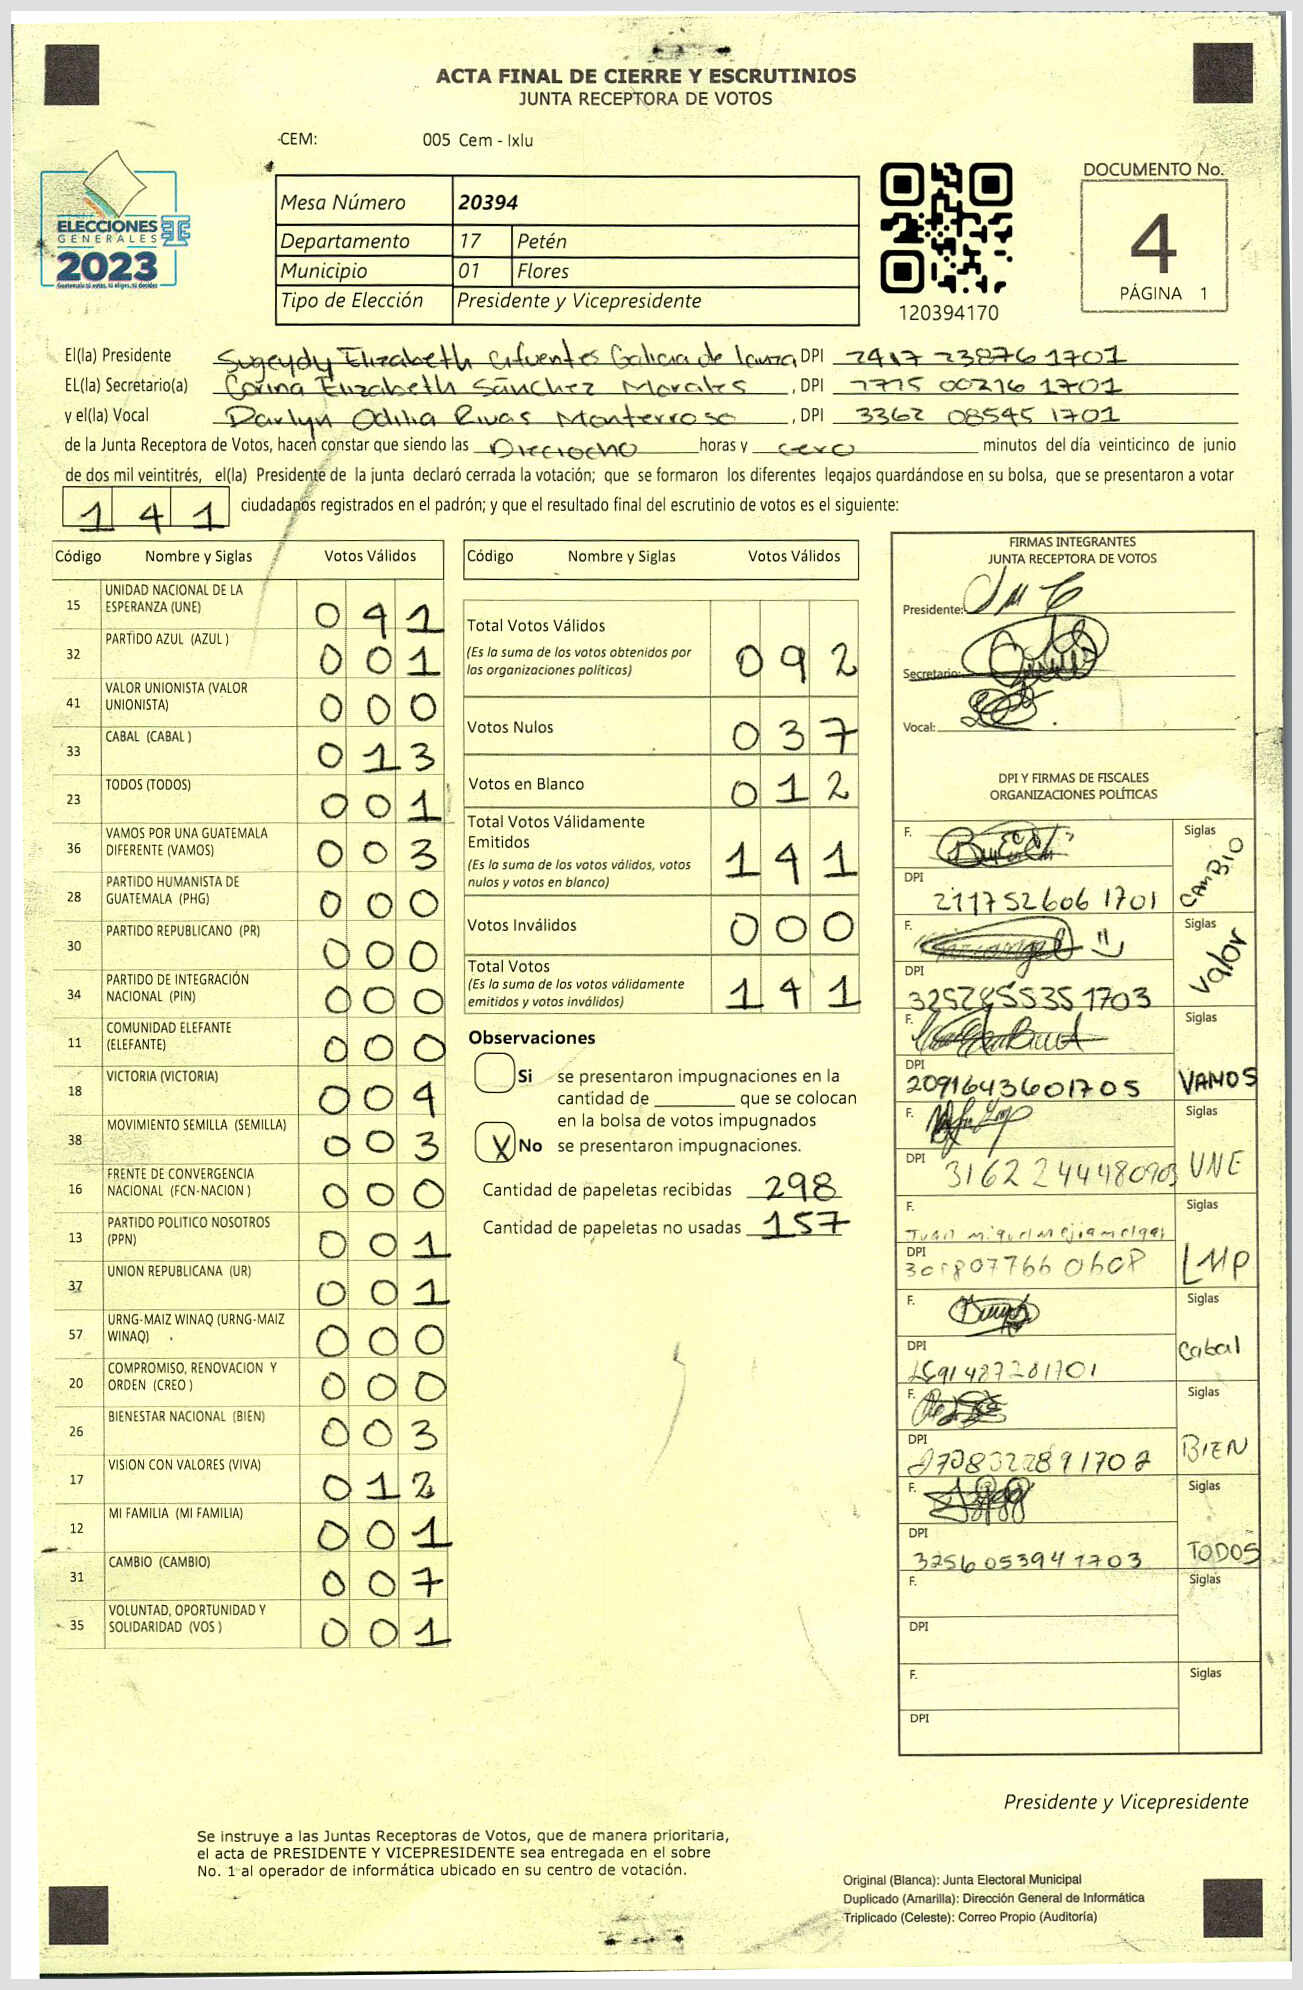 ACTA FINAL DE CIERRE Y ESCRUTINIOS
JUNTA RECEPTORA DE VOTOS
CEM: 005 Cem - Ixlu
ELECCIONES
GENERALES
2023
Guatemala tú votas, tú eliges, tú decides
Mesa Número 20394
Departamento 17 Petén
Municipio 01 Flores
Tipo de Elección Presidente y Vicepresidente
120394170
DOCUMENTO No.
4
PÁGINA 1
El(la) Presidente Sugeydy Elizabeth Cifuentes Galicia de , DPI 2417 23876 1701
EL(la) Secretario(a) Corina Elizabeth Sánchez Morales , DPI 1775 00216 1701
y el(la) Vocal Darlyn Odilia Rivas Monterroso , DPI 3362 08545 1701
de la Junta Receptora de Votos, hacen constar que siendo las Dieciocho horas y cero minutos del día veinticinco de junio
de dos mil veintitrés, el(la) Presidente de la junta declaró cerrada la votación; que se formaron los diferentes legajos guardándose en su bolsa, que se presentaron a votar
141 ciudadanos registrados en el padrón; y que el resultado final del escrutinio de votos es el siguiente:
Código Nombre y Siglas Votos Válidos
15 UNIDAD NACIONAL DE LA
ESPERANZA (UNE) 041
32 PARTIDO AZUL (AZUL ) 001
41 VALOR UNIONISTA (VALOR
UNIONISTA) 000
33 CABAL (CABAL ) 013
23 TODOS (TODOS) 001
36 VAMOS POR UNA GUATEMALA
DIFERENTE (VAMOS) 003
28 PARTIDO HUMANISTA DE
GUATEMALA (PHG) 000
30 PARTIDO REPUBLICANO (PR) 000
34 PARTIDO DE INTEGRACIÓN
NACIONAL (PIN) 000
11 COMUNIDAD ELEFANTE
(ELEFANTE) 000
18 VICTORIA (VICTORIA) 004
38 MOVIMIENTO SEMILLA (SEMILLA) 003
16 FRENTE DE CONVERGENCIA
NACIONAL (FCN-NACION ) 000
13 PARTIDO POLITICO NOSOTROS
(PPN) 001
37 UNION REPUBLICANA (UR) 001
57 URNG-MAIZ WINAQ (URNG-MAIZ
WINAQ) 000
20 COMPROMISO, RENOVACION Y
ORDEN (CREO ) 000
26 BIENESTAR NACIONAL (BIEN) 003
17 VISION CON VALORES (VIVA) 012
12 MI FAMILIA (MI FAMILIA) 001
31 CAMBIO (CAMBIO) 007
35 VOLUNTAD, OPORTUNIDAD Y
SOLIDARIDAD (VOS ) 001
Código Nombre y Siglas Votos Válidos
Total Votos Válidos
(Es la suma de los votos obtenidos por
las organizaciones políticas) 092
Votos Nulos 037
Votos en Blanco 012
Total Votos Válidamente
Emitidos
(Es la suma de los votos válidos, votos
nulos y votos en blanco) 141
Votos Inválidos 000
Total Votos
(Es la suma de los votos válidamente
emitidos y votos inválidos) 141
Observaciones
Si se presentaron impugnaciones en la
cantidad de ________ que se colocan
en la bolsa de votos impugnados
X No se presentaron impugnaciones.
Cantidad de papeletas recibidas 298
Cantidad de papeletas no usadas 157
FIRMAS INTEGRANTES
JUNTA RECEPTORA DE VOTOS
Presidente:
Secretario:
Vocal:
DPI Y FIRMAS DE FISCALES
ORGANIZACIONES POLÍTICAS
F. Siglas
DPI CAMBIO
211752606 1701
F. Siglas
DPI Valor
3252855351703
F. Siglas
DPI
2091643601705 VAMOS
F. Siglas
DPI
3162244480903 UNE
F. Siglas
Juan Miguel
DPI LMP
F. Siglas
DPI Cabal
F. Siglas
DPI BIEN
F. Siglas
DPI TODOS
3256053941703
F. Siglas
DPI
F. Siglas
DPI
Presidente y Vicepresidente
Se instruye a las Juntas Receptoras de Votos, que de manera prioritaria,
el acta de PRESIDENTE Y VICEPRESIDENTE sea entregada en el sobre
No. 1 al operador de informática ubicado en su centro de votación.
Original (Blanca): Junta Electoral Municipal
Duplicado (Amarilla): Dirección General de Informática
Triplicado (Celeste): Correo Propio (Auditoría)